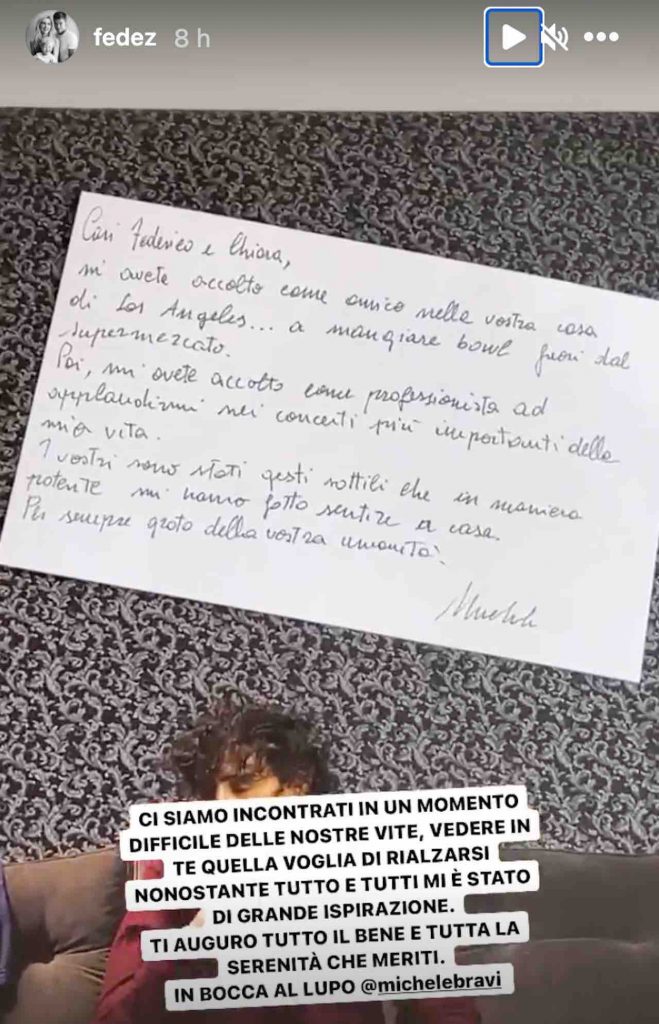 fedez 8 h
Cari Federico e Chiara,
m'avete accolto come amico nella vostra casa
di Los Angeles... a mangiare bowl fuori dal
supermercato.
Poi, mi avete accolto come professionista ad
applaudirmi nei concerti più importanti della
mia vita.
I vostri sono stati gesti sottili che in maniera
potente mi hanno fatto sentire a casa.
Per sempre grato della vostra umanità.
Michele
CI SIAMO INCONTRATI IN UN MOMENTO
DIFFICILE DELLE NOSTRE VITE, VEDERE IN
TE QUELLA VOGLIA DI RIALZARSI
NONOSTANTE TUTTO E TUTTI MI È STATO
DI GRANDE ISPIRAZIONE.
TI AUGURO TUTTO IL BENE E TUTTA LA
SERENITÀ CHE MERITI.
IN BOCCA AL LUPO @michelebravi